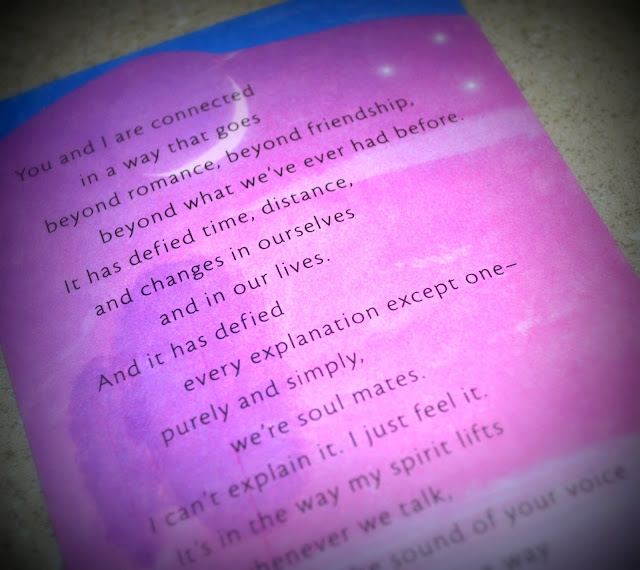 You and I are connected
in a way that goes
beyond romance, beyond friendship,
beyond what we've ever had before.
It has defied time, distance,
and changes in ourselves
and in our lives.
And it has defied
every explanation except one–
purely and simply,
we're soul mates.
I can't explain it. I just feel it.
It's in the way my spirit lifts
whenever we talk,
sound of your voice
a way